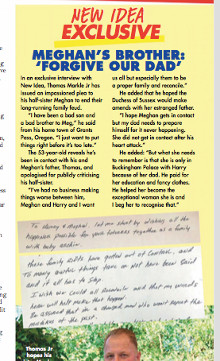 NEW IDEA
EXCLUSIVE
MEGHAN'S BROTHER:
'FORGIVE OUR DAD'
In an exclusive interview with
New Idea, Thomas Markle Jr has
issued an impassioned plea to
his half-sister Meghan to end their
long-running family feud.
"I have been a bad son and
a bad brother to Meg," he said
from his home town of Grants
Pass, Oregon. "I just want to put
things right before it's too late."
The 53-year-old reveals he's
been in contact with his and
Meghan's father, Thomas, and
apologised for publicly criticising
his half-sister.
"I've had no business making
things worse between him,
Meghan and Harry and I want
us all but especially them to be
a proper family and reconcile."
He added that he hoped the
Duchess of Sussex would make
amends with her estranged father.
"I hope Meghan gets in contact
but my dad needs to prepare
himself for it never happening.
She did not get in contact after his
heart attack."
He added: "But what she needs
to remember is that she is only in
Buckingham Palace with Harry
because of her dad. He paid for
her education and fancy clothes.
He helped her become the
exceptional woman she is and
I beg her to remember that."
To Harry & Meghan. let me start by wishing all the
happiness possible for your futures together as a family
with baby Archie.
These family rifts have gotten out of Control, and
To many awful things have or not have been Said
and it all has to stop
I wish we could all
past the
Thomas Jr
hopes his